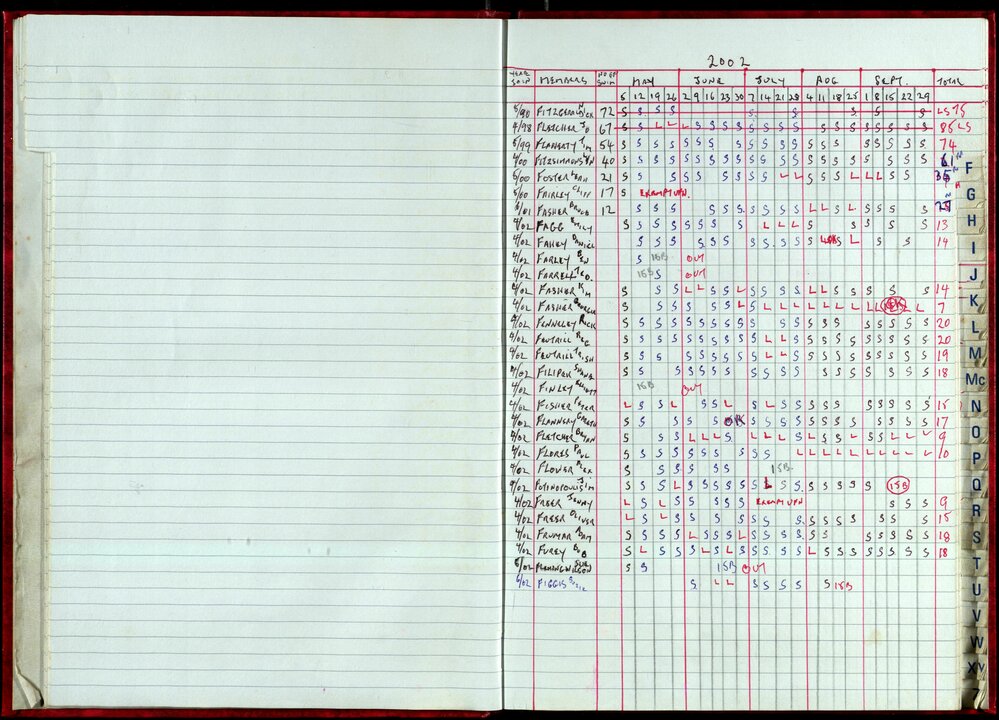 2002
YEAR JOIN MEMBERS NO OF SWIM MAY JUNE JULY AUG SEPT. TOTAL
5 12 19 26 2 9 16 23 30 7 14 21 28 4 11 18 25 1 8 15 22 29
5/90 FITZGERALD 72 S S S S S S S S LS 75
4/98 FLETCHER JO 67 S S L L L S S S S S S S S S S S S S S S S 86 LS
5/99 FLAHERTY TIM 54 S S S S S S S S S S S S S S S S S S S 74
4/00 FITZSIMMONS 40 S S S S S S S S S S S S S S S S S S S S 61
5/00 FOSTER 21 S S S S S S S S S L L S S S L L L S S
5/00 FAIRLEY CLIFF 17 S EXEMPTION.
5/01 FASHER BRUCE 12 S S S S S S S S S S L L S L S S S S
4/02 FAGG EMILY S S S S S S S S L L L S S S S S 13
4/02 FAHEY DANIEL S S S S S S S S S S S S L S S 14
4/02 FARLEY BEN S 1SB OUT
4/02 FARRELL TED. 1SB S OUT
4/02 FASHER KIM S S S L L S S L S S S S L L S S S S S 14
4/02 FASHER GEORGIE S S S S S S L S L L L L L L L L L L L 7
4/02 FENNELEY RICK S S S S S S S S S S S S S S S S S S S S 20
4/02 FEUTRILL REG S S S S S S S S S S L L S S S S S S S S S S 20
4/02 FEUTRILL TRISH S S S S S S S S S L L S S S S S S S S S 19
4/02 FILIPER S S S S S S S S S S S S S S S S S S 18
4/02 FINLEY 1SB OUT
4/02 FISHER PETER L S S L S S L S L S S S S S S S S S S 15
4/02 FLANNERY GARETH S S S S S S S S S S S S S S S S S S 17
4/02 FLETCHER BRIAN S S S L L L S L L L S L S S L S S L L L 9
4/02 FLORES PAUL S S S S S S S S S S L L L L L L L L L 10
4/02 FLOWER ALEX S S S S S S 1SB
4/02 FOTINOPOULIS JIM S S S L S S S S S S L S S S S S S S 1SB
4/02 FREER JENNY L S L S S S S EXEMPTION S S S 9
4/02 FREER OLIVER L S L S S S S S S S S S S S S S S 15
4/02 FRUMAR ADAM S S S S L S S S L S S S S S S S S S S S 18
4/02 FUREY BOB S L S S S L S L S S S S L S S S S S S S S 18
5/02 FLEMING WILSON SUE S S 1SB OUT
6/02 FIGGIS S L L S S S S S 1SB
F
G
H
I
J
K
L
M
Mc
N
O
P
Q
R
S
T
U
V
W
XY
Z